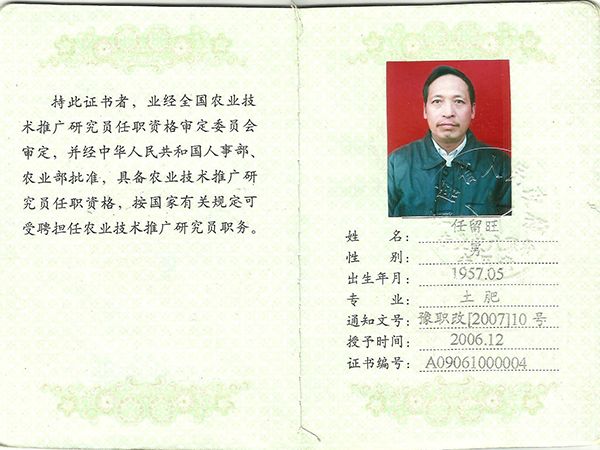 持此证书者，业经全国农业技
术推广研究员任职资格审定委员会
审定，并经中华人民共和国人事部、
农业部批准，具备农业技术推广研
究员任职资格，按国家有关规定可
受聘担任农业技术推广研究员职务。
姓 名：任留旺
性 别：男
出生年月：1957.05
专 业：土肥
通知文号：豫职改[2007]10号
授予时间：2006.12
证书编号：A09061000004